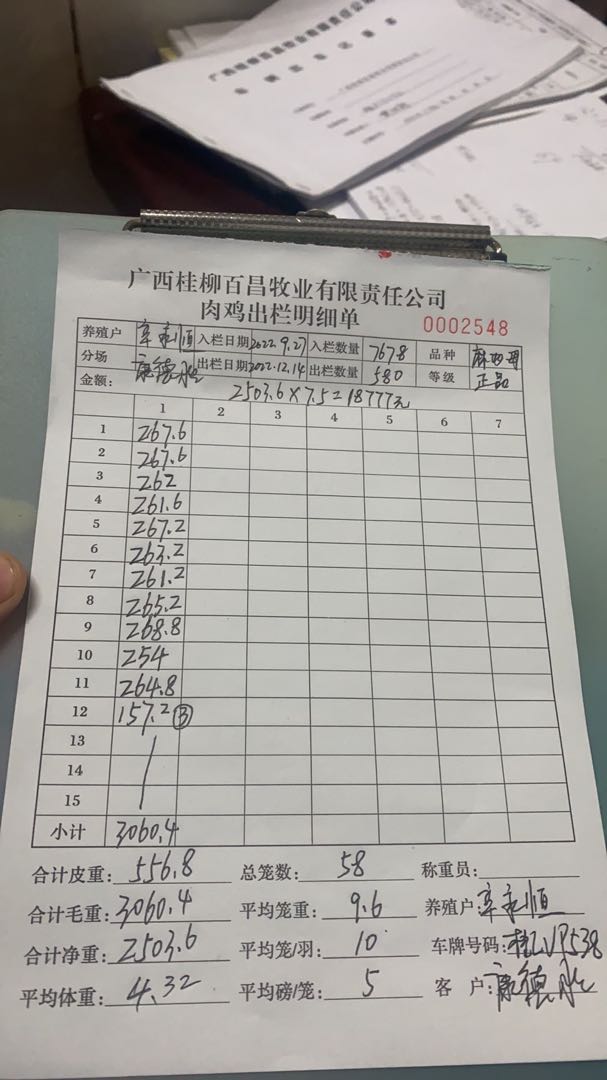 广西桂柳百昌牧业有限责任公司
肉鸡出栏明细单
0002548
养殖户 入栏日期 2022.9.27 入栏数量 7678 品种
分场 康德 出栏日期 2022.12.14 出栏数量 580 等级 正品
金额: 2503.6×7.5=18777元
1 2 3 4 5 6 7
1 267.6
2 267.6
3 262
4 261.6
5 267.2
6 263.2
7 261.2
8 265.2
9 268.8
10 254
11 264.8
12 157.2 ③
13
14
15
小计 3060.4
合计皮重: 556.8 总笼数: 58 称重员:
合计毛重: 3060.4 平均笼重: 9.6 养殖户:
合计净重: 2503.6 平均笼/羽: 10 车牌号码:
平均体重: 4.32 平均磅/笼: 5 客户: 康德